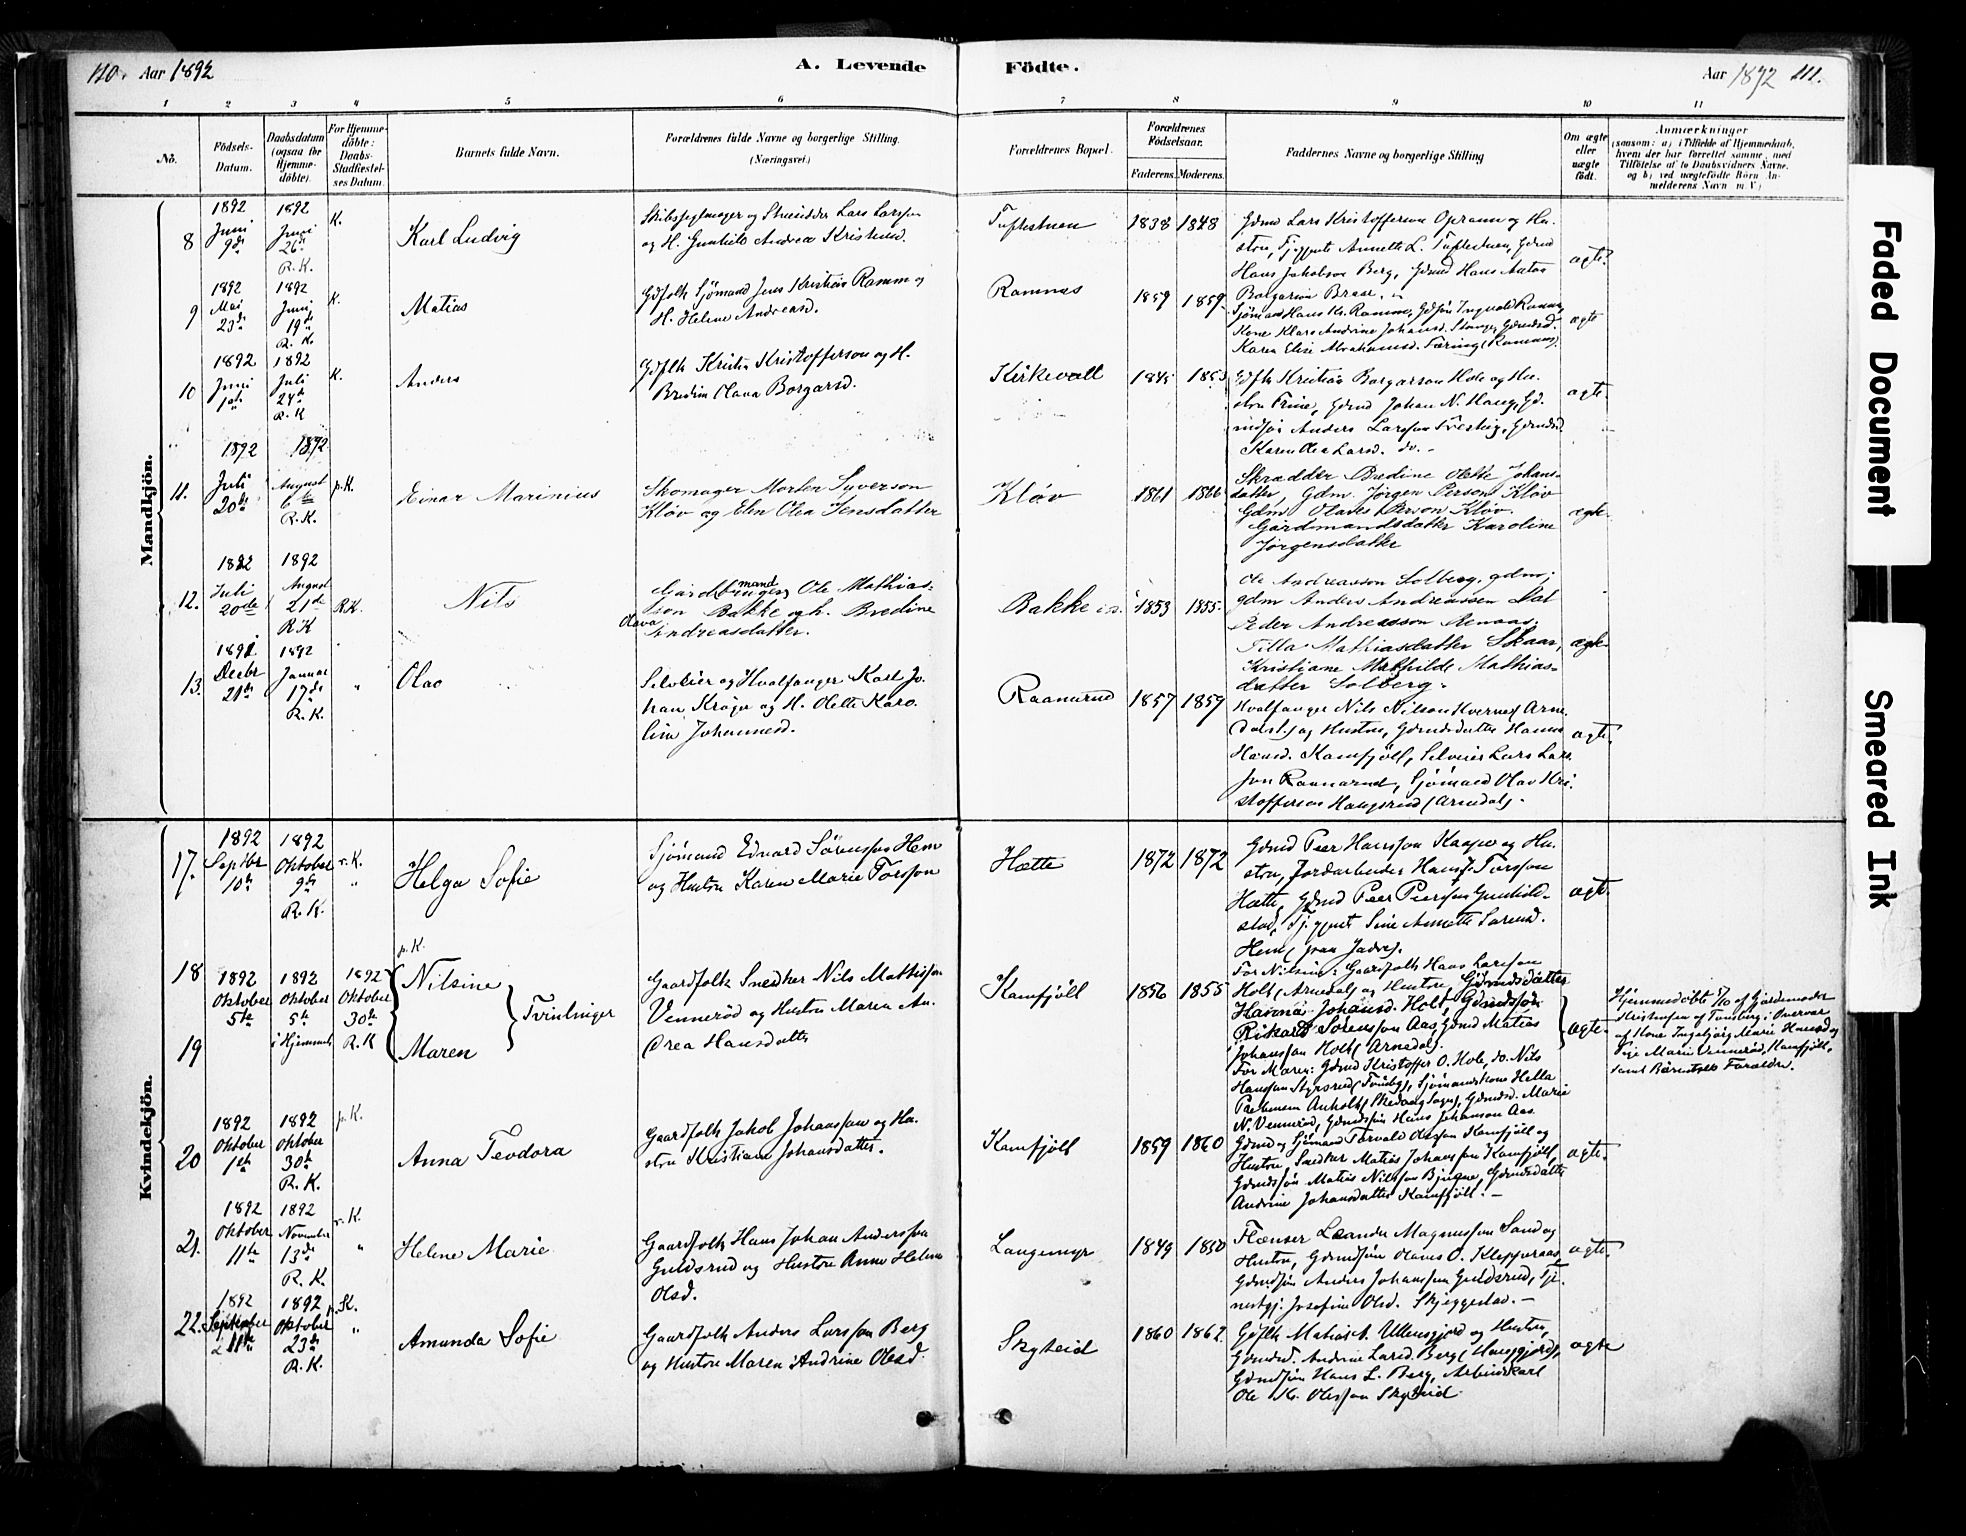 110. Aar 1892
A. Levende
Födte.
Aar 1892 111.
1 2 3 4 5 6 7 8 9 10 11
No.
Födsels-
Datum.
Daabsdatum
(ogsaa for
Hjemme-
döbte).
For Hjemme-
döbte:
Daabs-
Stadfæstel-
ses Datum.
Barnets fulde Navn.
Forældrenes fulde Navne og borgerlige Stilling.
(Næringsvei.)
Forældrenes Bopæl.
Forældrenes
Födselsaar.
Faderens. Moderens.
Faddernes Navne og borgerlige Stilling
Om ægte
eller
uægte
födt.
Anmærkninger
(saasom: a) i Tilfælde af Hjemmedaab,
hvem der har forrettet samme, med
Tilföielse af to Daabsvidners Navne,
og b) ved uægtefödte Börn An-
melderens Navn m. V.)
Mandkjön.
8
1892
Juni
9de
1892
Juni
26de
R. K.
K.
Karl Ludvig
Skibs og Lars Larssen
og H. Gunhild Andrea Kristensd.
Tufteskuen
1838 1848
Gdmd Lars Kristofferson og Hu-
stru, Tjgpute Annette L. Tufteskuen, Gdmd
Hans Jakobson Berg, Gdmd Hans Anton
Borgerson
ægte.
9
1892
Mai
23de
1892
Juni
19de
R. K.
K.
Matias
Gdfolk Sjömand Jens Kristian Ramm og
H. Helene Andreasd.
Ramnæs
1859 1859.
Sjömand Hans Kr. Ramm, Gdsön Ingvald Ramm,
Kone Klara Andrine Johansd. Stange, Gdmdsd.
Karen Elise Abrahamsd.
ægte
10
1892
Juni
1ste
1892
Juli
24de
R. K
K.
Anders
Gdflk Kristen Kristofferson og H.
Bredine Olava Borgarsd.
Kirkevoll
1845 1853
Gdflk Kristian Borgarson Hole og Hu-
stru Trine, Gdmd Johan N. Haug, Gd.
mdsön Anders Larsson Gdmdsd.
Karen Olea Larsd. do. -
ægte.
11.
1892
Juli
20de
1892
August
6te
R. K.
p. K.
Einar Marinius
Skomager Morten Syverson
Klöv og Elen Olea Jensdatter
Klöv
1861 1866
Skrædder Bredine Olette Johans-
datter, Gdm. Jörgen Person Klöv
Gdm Olaves Person Klöv.
Gardsmandsdatter Karoline
Jörgensdatter
ægte.
12.
1892
Juli
20de
1892
August
21de
R K
R K.
Nils
Gardbrugermand Ole Mathias-
son Bakke og h. Bredine
Olava Andreasdatter.
Bakke
1853 1855.
Ole Andreasson Solberg, gdm;
gdm Anders Andreassen
Peder Andreasson
Tilla Mathiasdatter Skaar,
Kristiane Mathilde Mathias-
datter Solberg.
ægte
13.
1891
Decbr
21de
1892
Januar
17de
R. K.
"
Olav
Selveier og Hvalfanger Karl Jo-
han og H. Olette Karo-
line Johannesd.
Raanerud
1857 1859
Hvalfanger Nils Nilson (Arne-
dals) og Hustru, Gdmdsdatter Hanna
Hansd. Kamfjöll, Selveier Lars Lars-
son Raanerud, Sjömand Olav Kri-
stofferson Haugsrud (Arnedal).
ægte.
Kvindekjön.
17.
1892
Septbr
10de
1892
Oktober
9de
R. K.
v. K.
"
Helga Sofie
Sjömand Edvard Sörensson Hem
og Hustru Karen Marie Torsson
Hætte
1872 1872
Gdmd Peer Hansson og Hu-
stru, Jordarbeider Hans J. Torsson
Hætte, Gdmd Peer Peerson Gunhild-
stad, Tj.gpget Sine Annette Sörensd.
Hem
ægte.
p. K.
18
1892
Oktober
5te
1892
Oktober
5te
i Hjemmet
1892
Oktober
30te
R. K
Nilsine
Tvinlinger
19
Maren
Gaardfolk Snedker Nils Mathisson
Vennerød og Hustru Maren An-
drea Hansdatter
Kamfjöll
1856 1855
For Nilsine: Gaardfolk Hans Larsson
Holt (Arnedal) og Hustru, Gdmdsdatter
Hanna Johansd. Holt, Gdmdssön
Rikard Sörensson Aas, Gdmd Matias
Johansson Holt (Arnedal).
For Maren: Gdmd Kristoffer O. Hole, do. Nils
Hansson Sjömandskone Hella
Gdmdsd. Marie
N. Vennerød, Gdmdssön Hans Johansson Aas.
ægte.
Hjemmedöbt 5/10 af Gjordemoder
Kristensen af Tönsberg i Overvær
af Kone Ingebjörg Marie Hansd og
Pige Marie Vennerød, Kamfjöll,
samt Barnets Forældre.
20
1892
Oktober
1ste
1892
Oktober
30te
R. K.
p. K.
Anna Teodora
Gaardfolk Jakob Johansson og Hu-
stru Kristiane Johansdatter.
Kamfjöll
1859 1860
Gdmd og Sjömand Torvald Olsson Kamfjöll og
Hustru, Snedker Matias Johansson Kamfjöll,
Gdmdssön Matias Nilsson Gdmdsdatter
Andrine Johansdatter Kamfjöll. -
ægte.
21.
1892
Oktober
11te
1892
November
13de
R. K.
v. K.
"
Helene Marie
Gaardfolk Hans Johan Andersson
Guldsrud og Hustru Anne Helene
Olsd.
Langemyr
1849 1850
Flænser Leander Magnusson Sand og
Hustru, Gdmdsön Olaves O. Klepperaas,
Gdmdsön Anders Johansson Guldsrud, Tje-
nestpj. Josefine Olsd. Skjeggestad. -
ægte.
22.
1892
September
11te
1892
Oktober
23de
R. K.
p. K.
"
Amunda Sofie
Gaardfolk Anders Larsson Berg
og Hustru Maren Andrine Olsd.
Skyteid
1860 1862
Gdflk Matias A. Ullensgjord og Hustru,
Gdmdsd. Andrine Larsd. Berg (Haugjord),
Gdmdsön Hans L. Berg, Arbeidskarl
Ole Kr. Olsson Skyteid.
ægte
Faded Document
Smeared Ink